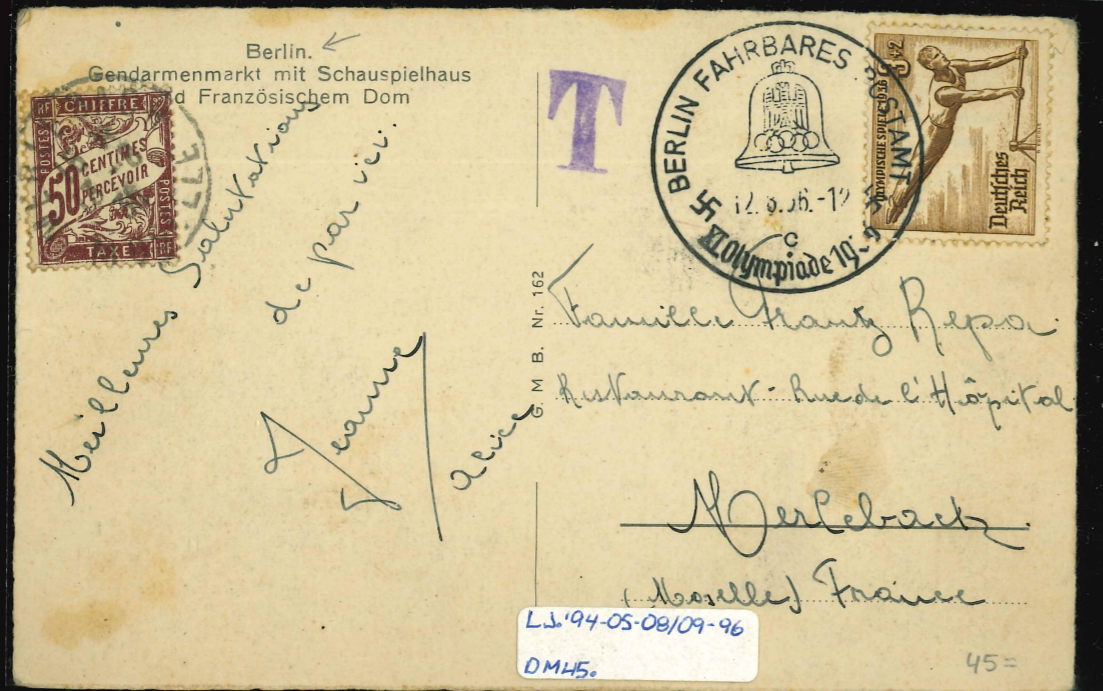 Berlin.
Gendarmenmarkt mit Schauspielhaus
d Französischem Dom
RF CHIFFRE
POSTES
50 CENTIMES
PERCEVOIR
POSTES
TAXE RF
LLE
Meilleures Salutations
de par ici.
Jeanne
Alice
T
G. M. B. Nr. 162
BERLIN FAHRBARES POSTAMT
12. 8.36.-12
c
XI. Olympiade 1936
OLYMPISCHE SPIELE 1936
3+2
Deutsches
Reich
Famille Frantz Repa
Restaurant-Rue de l'Hôpital
Merlebach
(Moselle) France
L.J. '94-05-08/09-96
DM45.
45=